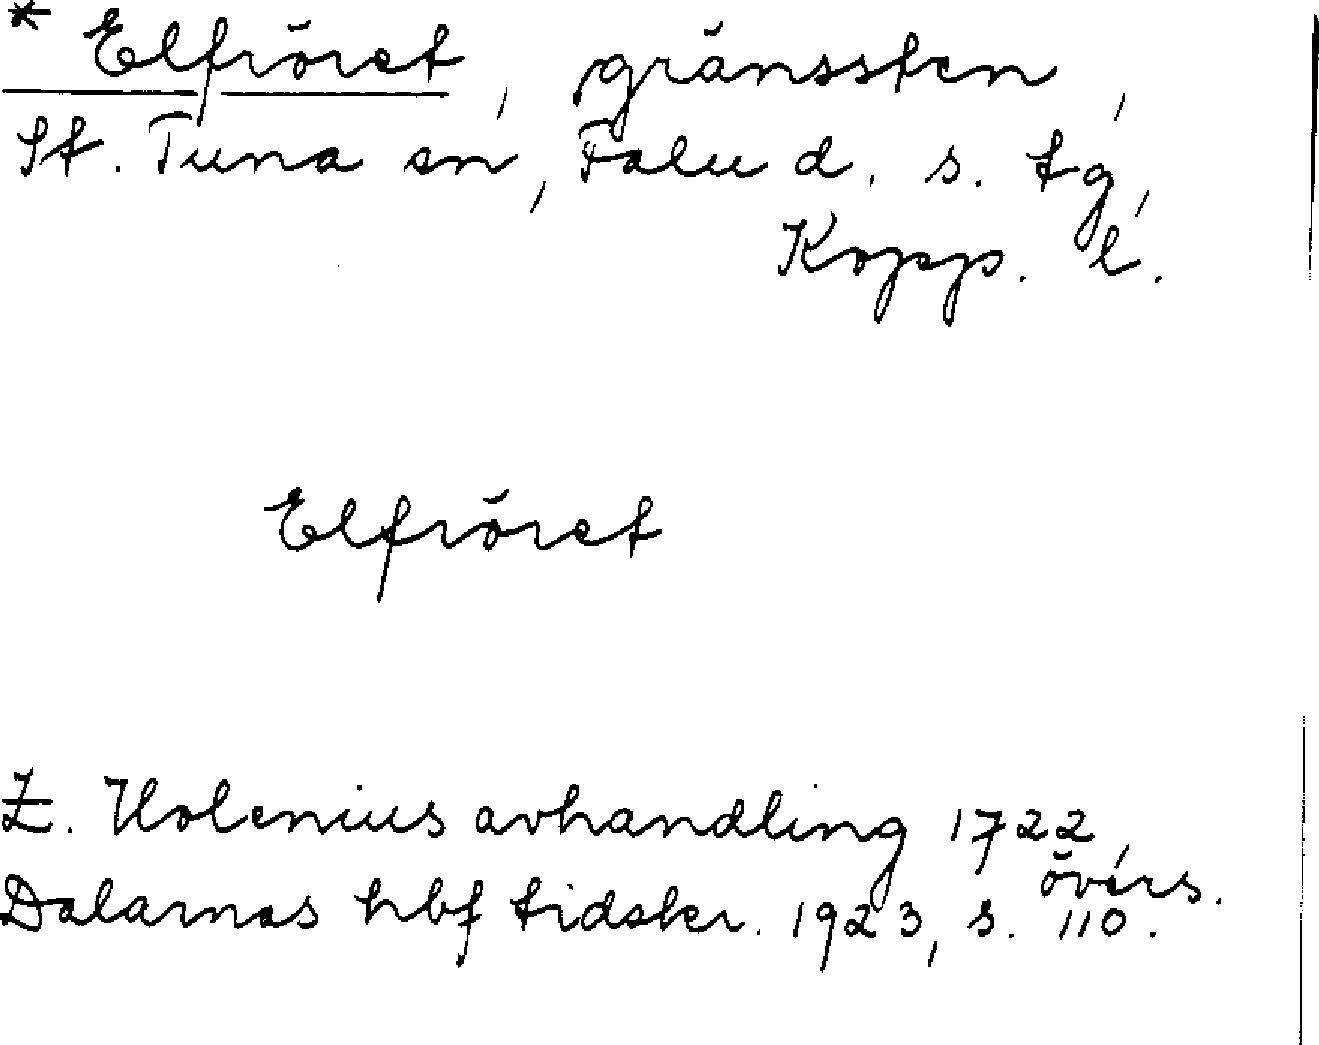 * Elfröret, gränssten,
St. Tuna sn, Falu d. s. tg,
Kopp. l.
Elfröret
Z. Holenius avhandling 1722,
övers.
Dalarnas hbf tidskr. 1923, s. 110.